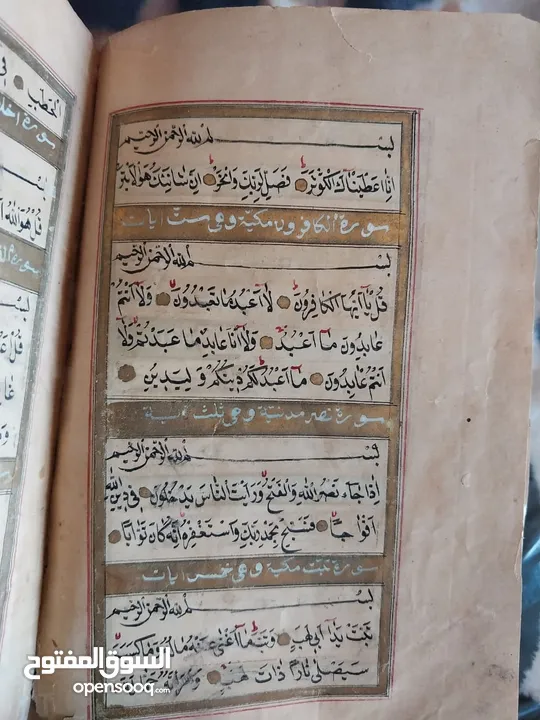 بِسْمِ اللهِ الرَّحْمٰنِ الرَّحِيمِ
اِنَّا اَعْطَيْنَاكَ الْكَوْثَرَ فَصَلِّ لِرَبِّكَ وَانْحَرْ اِنَّ شَانِئَكَ هُوَ الْاَبْتَرُ
سورة الكافرون مكية وهي ست ايات
بِسْمِ اللهِ الرَّحْمٰنِ الرَّحِيمِ
قُلْ يَا اَيُّهَا الْكَافِرُونَ لَا اَعْبُدُ مَا تَعْبُدُونَ وَلَا اَنْتُمْ
عَابِدُونَ مَا اَعْبُدُ وَلَا اَنَا عَابِدٌ مَا عَبَدْتُمْ وَلَا
اَنْتُمْ عَابِدُونَ مَا اَعْبُدُ لَكُمْ دِينُكُمْ وَلِيَ دِينِ
سورة نصر مدنية وهي ثلث اية
بِسْمِ اللهِ الرَّحْمٰنِ الرَّحِيمِ
اِذَا جَاءَ نَصْرُ اللهِ وَالْفَتْحُ وَرَاَيْتَ النَّاسَ يَدْخُلُونَ فِي دِينِ اللهِ
اَفْوَاجًا فَسَبِّحْ بِحَمْدِ رَبِّكَ وَاسْتَغْفِرْهُ اِنَّهُ كَانَ تَوَّابًا
سورة تبت مكية وهي خمس ايات
بِسْمِ اللهِ الرَّحْمٰنِ الرَّحِيمِ
تَبَّتْ يَدَا اَبِي لَهَبٍ وَتَبَّ مَا اَغْنٰى عَنْهُ مَالُهُ وَمَا كَسَبَ
سَيَصْلٰى نَارًا ذَاتَ لَهَبٍ
السوق المفتوح
opensooq.com